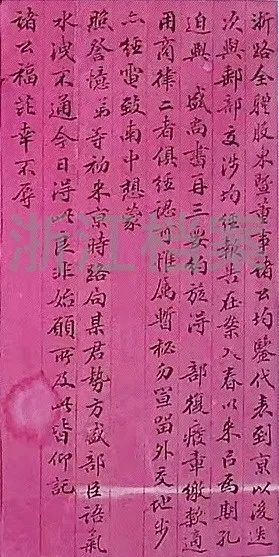 浙路全體股東暨董事諸公均鑒代表到京以後迭
次與郵部交涉均經報告在案入春以來為期孔
迫與 盛尚書再三要約旋得 部復廢章繳款適
用商律二者俱經認可惟屬暫秘勿宣留外交地步
亦經電致南中想蒙
照詧憶弟等初來京時路局某君勢方盛部臣語氣
水洩不通今日得此良非始願所及此皆仰託
諸公福幸不辱
浙江档案